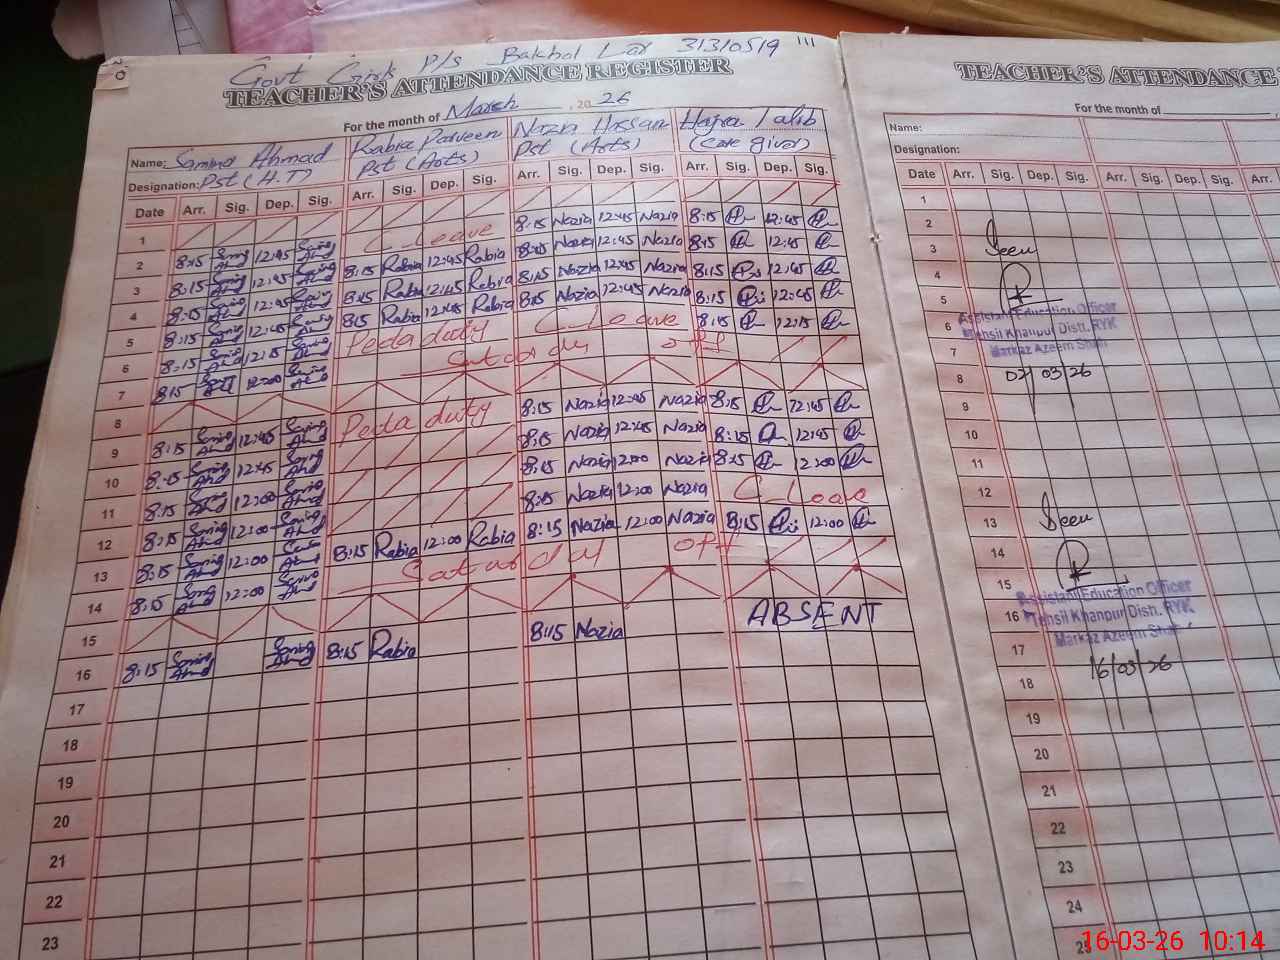 Govt Girls P/s Bakhol Lar 31310519
TEACHER'S ATTENDANCE REGISTER
For the month of March, 2026
Name: Samina Ahmad Rabia Parveen Nazia Hassan Hajra Talib
Designation: Pst (H.T) Pst (Arts) Pst (Arts) (Care giver)
Date Arr. Sig. Dep. Sig. Arr. Sig. Dep. Sig. Arr. Sig. Dep. Sig. Arr. Sig. Dep. Sig.
1
2 8:15 12:45 C_Leave 8:15 Nazia 12:45 Nazia 8:15 12:45
3 8:15 12:45 8:15 Rabia 12:45 Rabia 8:15 Nazia 12:45 Nazia 8:15 12:45
4 8:15 12:45 8:15 Rabia 12:45 Rabia 8:15 Nazia 12:45 Nazia 8:15 12:45
5 8:15 12:45 8:15 Rabia 12:45 Rabia 8:15 Nazia 12:45 Nazia 8:15 12:45
6 8:15 12:15 Peda duty C_Leave 8:15 12:15
7 8:15 12:00 off
8
9 8:15 12:45 Peda duty 8:15 Nazia 12:45 Nazia 8:15 12:45
10 12:45 8:15 Nazia 12:45 Nazia 8:15 12:45
11 8:15 12:00 8:15 Nazia 12:00 Nazia 8:15 12:00
12 8:15 12:00 8:15 Nazia 12:00 Nazia C_Leave
13 8:15 12:00 8:15 Rabia 12:00 Rabia 8:15 Nazia 12:00 Nazia 8:15 12:00
14 8:15 12:00 off
15
16 8:15 8:15 Rabia 8:15 Nazia ABSENT
17
18
19
20
21
22
23
TEACHER'S ATTENDANCE
For the month of
Name:
Designation:
Date Arr. Sig. Dep. Sig. Arr. Sig. Dep. Sig. Arr.
1
2
3 Seen
4
5
Assistant Education Officer
6 Tehsil Khanpur Distt. RYK
7 Markaz Azeem Shah
8 07/03/26
9
10
11
12
13 Seen
14
15
Assistant Education Officer
16 Tehsil Khanpur Distt. RYK
17 Markaz Azeem Shah
18 16/03/26
19
20
21
22
23
24
25
16-03-26 10:14